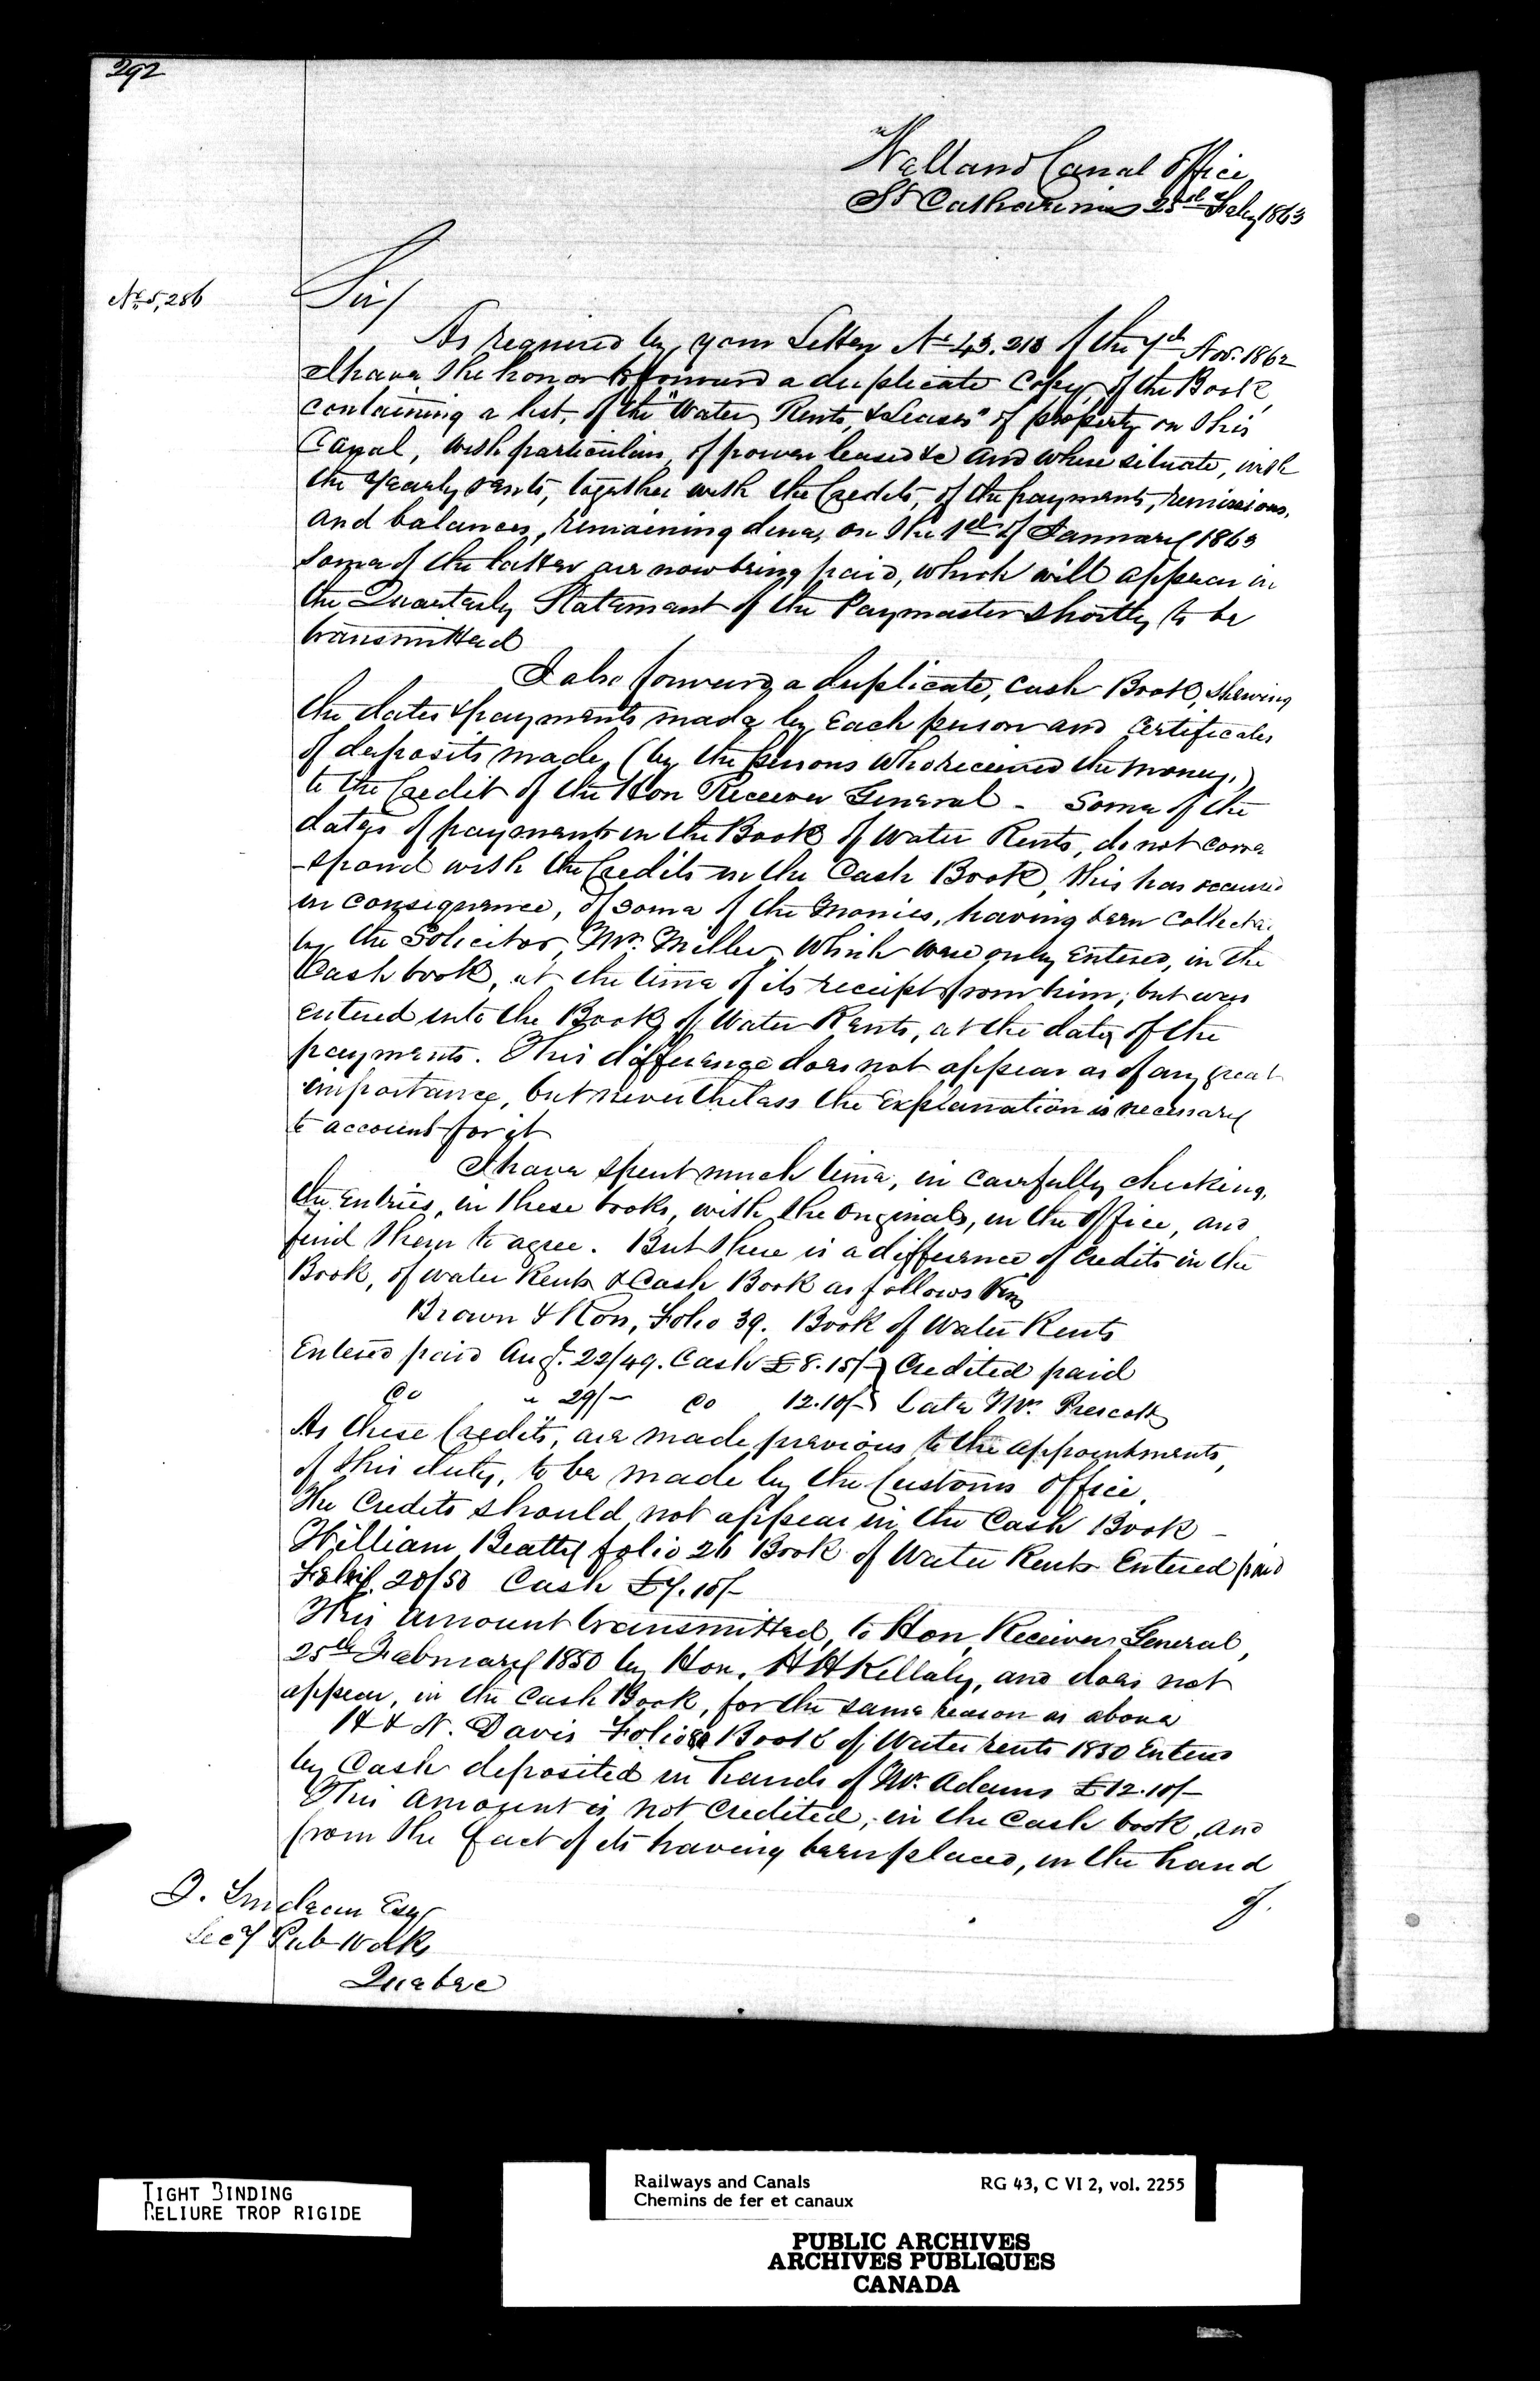 292
Welland Canal Office
St Catharines 25th Feby 1863
No 5,286
Sir
As required by your Letter No 43.218 of the 7th Nov. 1862
I have the honor to forward a duplicate Copy of the Book
containing a list, of the "Water Rents, & Leases" of property on this
Canal, with particulars, of power leased &c and where situate, with
the Yearly rents, together with the Credits, of the payments, remissions,
and balances, remaining due, on the 1st of January 1863
Some of the latter are now being paid, which will appear in
the Quarterly Statement of the Paymaster shortly to be
transmitted
I also forward a duplicate, Cash Book, shewing
the dates & payments made by each person and Certificates
of deposits made, (by the persons who received the money,)
to the Credit of the Hon Receiver General - Some of the
dates of payments in the Book of Water Rents, do not corre
-spond with the Credits in the Cash Book, this has occurred
in consequence, of some of the Monies, having been collected
by the Solicitor, Mr. Miller, which were only entered, in the
Cash book, at the time of its receipt from him, but was
entered into the Book of Water Rents, at the date of the
payments. This difference does not appear as of any great
importance, but nevertheless the Explanation is necessary
to account for it
I have spent much time, in carefully checking,
the entries, in these books, with the originals, in the office, and
find them to agree. But there is a difference of credits in the
Book, of Water Rents & Cash Book as follows Viz
Brown & Ross, Folio 39. Book of Water Rents
Entered paid Augt. 22/49. Cash £8.15/- } Credited paid
Do " 29/- Do 12.10/- } late Mr. Prescott
As these Credits, are made previous to the appointments,
of this duty, to be made by the Customs Office,
The Credits should not appear in the Cash Book -
William Beatty folio 26 Book of Water Rents Entered paid
20/50 Cash £7.10/-
This amount transmitted, to Hon Receiver General,
25th February 1850 by Hon. H H Killaly, and does not
appear, in the Cash Book, for the same reason as above
H & N. Davis Folio Book of Water rents 1850 Entered
by Cash deposited in hands of Mr. Adams £12.10/-
This amount is not Credited, in the Cash book, and
from the fact of its having been placed, in the hand
of.
Esqr
Secy Pub Works
Quebec
TIGHT BINDING
RELIURE TROP RIGIDE
Railways and Canals
Chemins de fer et canaux
RG 43, C VI 2, vol. 2255
PUBLIC ARCHIVES
ARCHIVES PUBLIQUES
CANADA